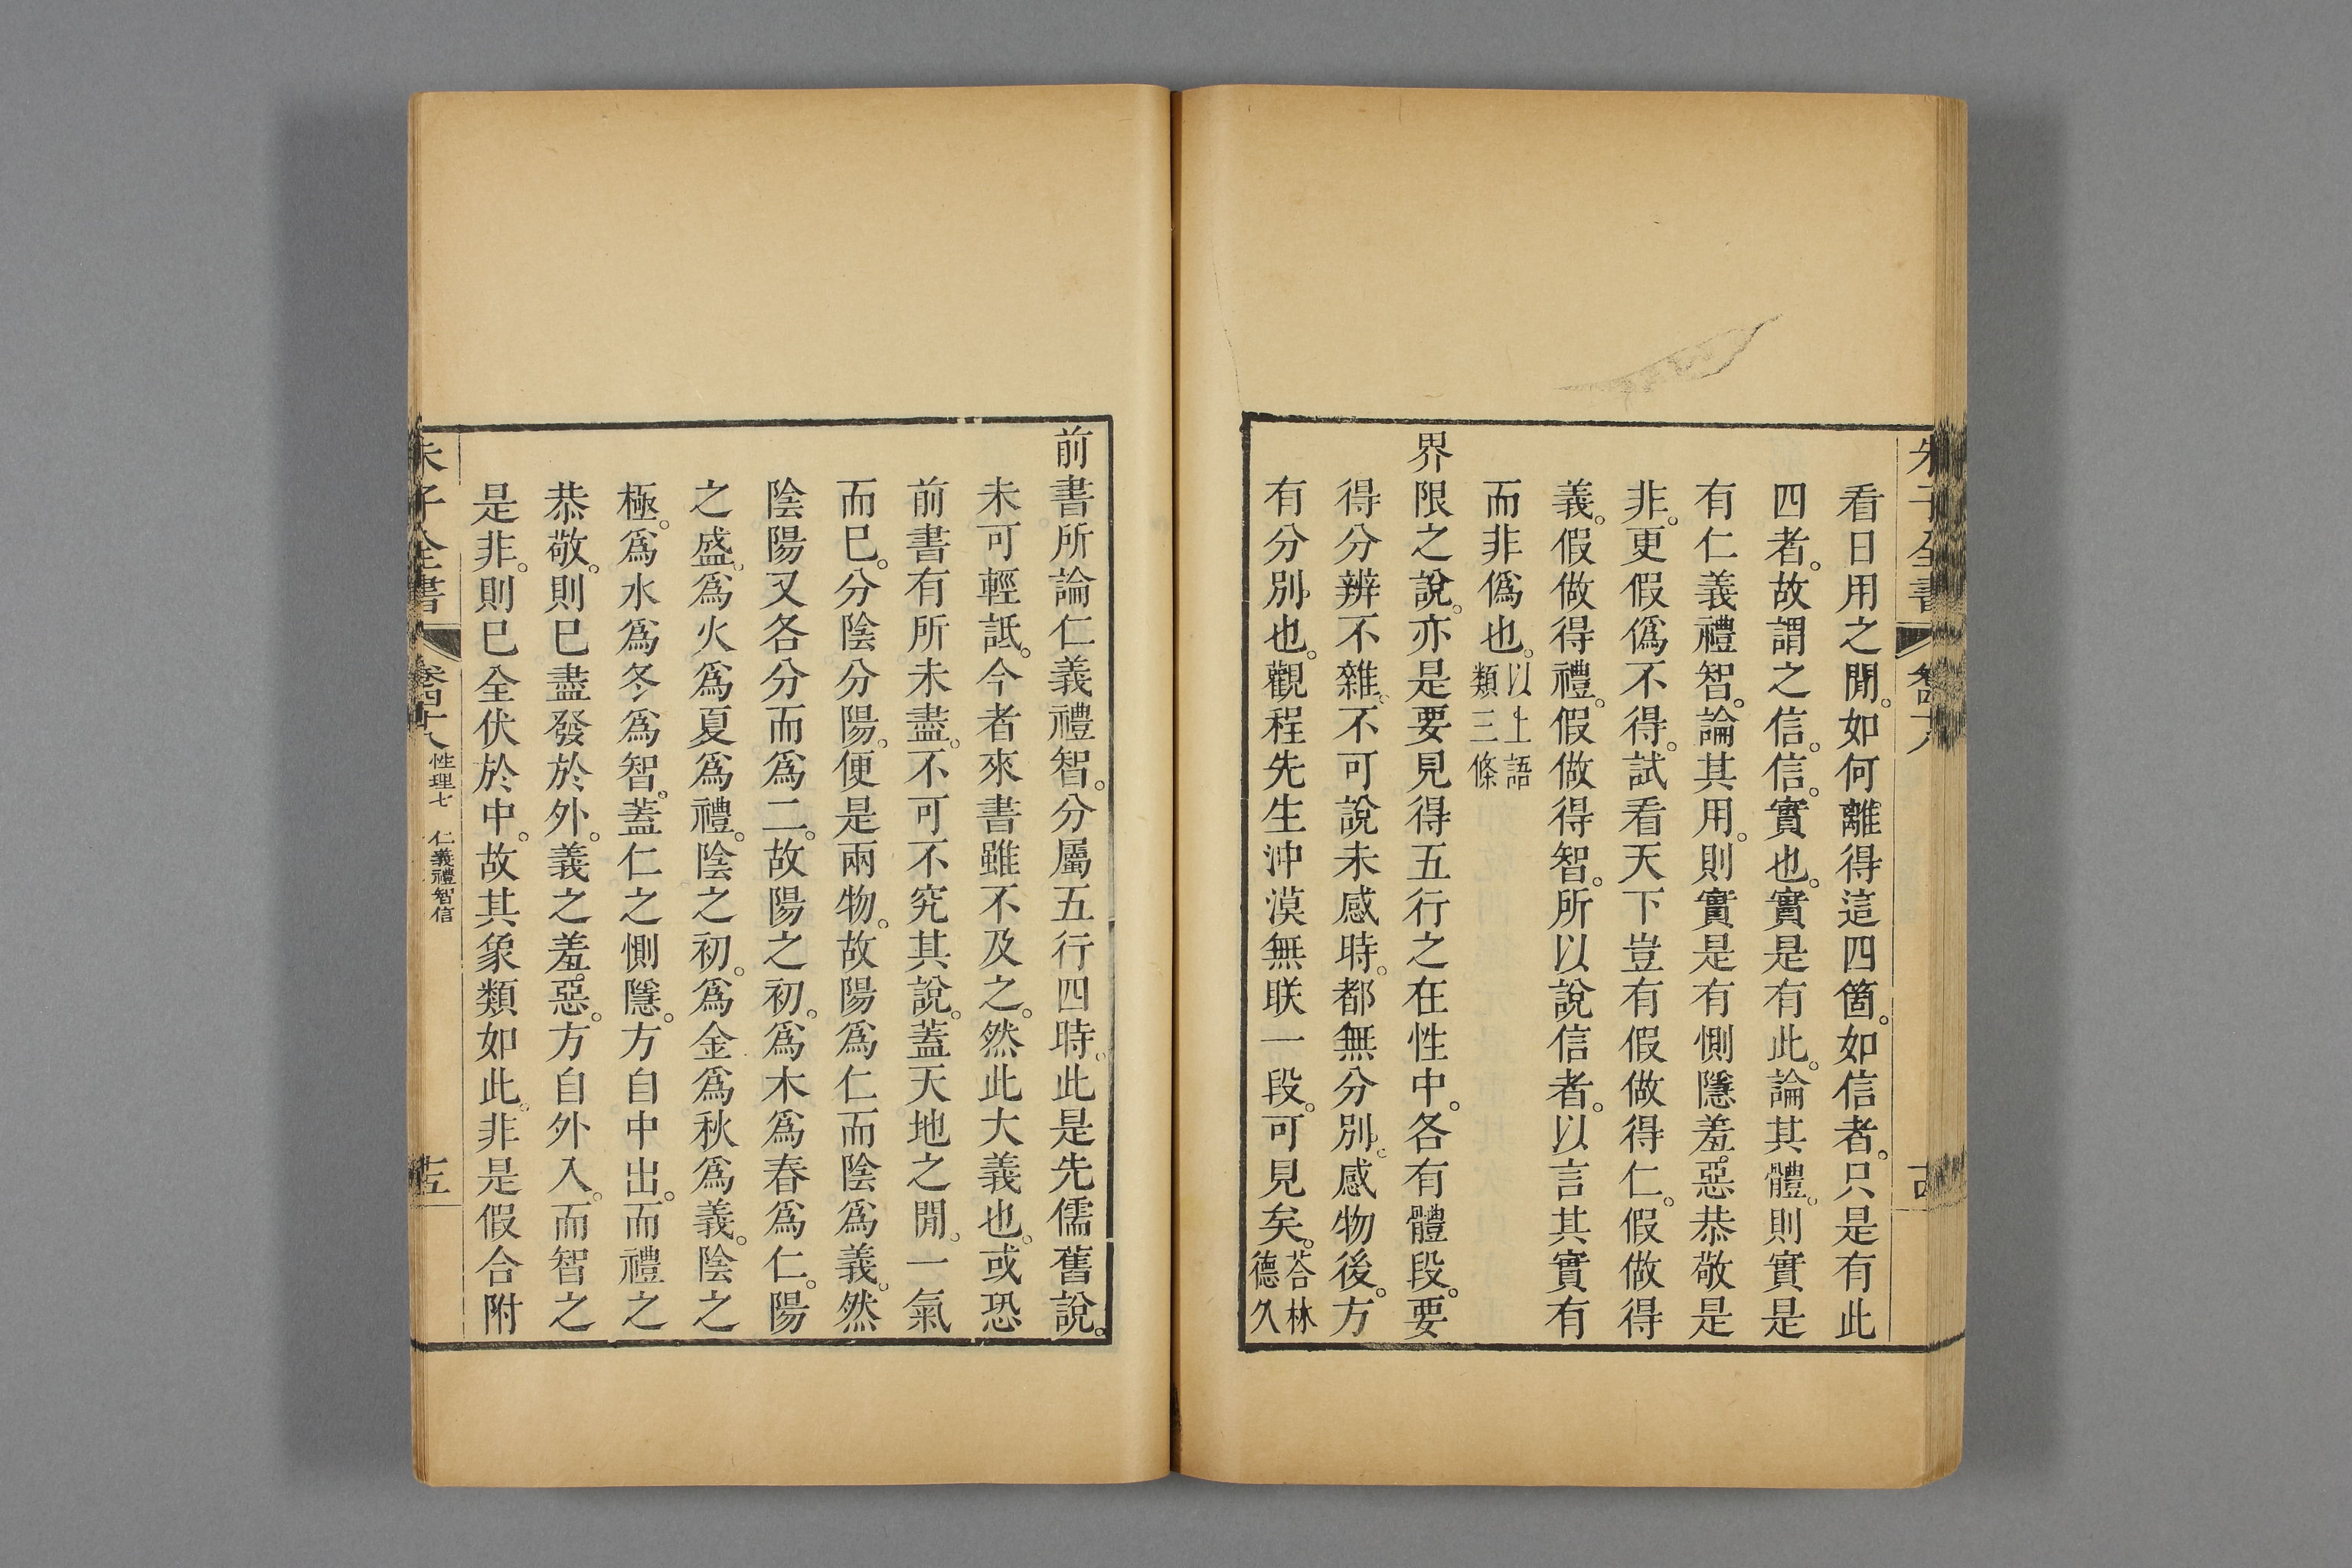 看日用之閒。如何離得這四箇。如信者。只是有此
四者。故謂之信。信。實也。實是有此。論其體。則實是
有仁義禮智。論其用。則實是有惻隱羞惡恭敬是
非。更假僞不得。試看天下豈有假做得仁。假做得
義。假做得禮。假做得智。所以說信者。以言其實有
而非僞也。以上語
類三條
界限之說。亦是要見得五行之在性中。各有體段。要
得分辨不雜。不可說未感時。都無分別。感物後。方
有分別也。觀程先生沖漠無朕一段。可見矣。荅林
德久
前書所論仁義禮智。分屬五行四時。此是先儒舊說。
未可輕詆。今者來書雖不及之。然此大義也。或恐
前書有所未盡。不可不究其說。蓋天地之閒。一氣
而已。分陰分陽。便是兩物。故陽爲仁而陰爲義。然
陰陽又各分而爲二。故陽之初。爲木爲春爲仁。陽
之盛。爲火爲夏爲禮。陰之初。爲金爲秋爲義。陰之
極。爲水爲冬爲智。蓋仁之惻隱。方自中出。而禮之
恭敬。則已盡發於外。義之羞惡。方自外入。而智之
是非。則已全伏於中。故其象類如此。非是假合附
朱子全書 卷四十八 性理七 仁義禮智信 十五